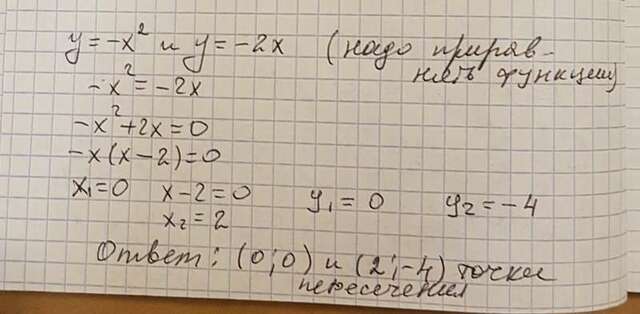 y = -x² и y = -2x (надо прирав-
нять функции)
-x² = -2x
-x² + 2x = 0
-x(x - 2) = 0
x₁ = 0 x - 2 = 0 y₁ = 0 y₂ = -4
x₂ = 2
Ответ: (0; 0) и (2; -4) точки
пересечения